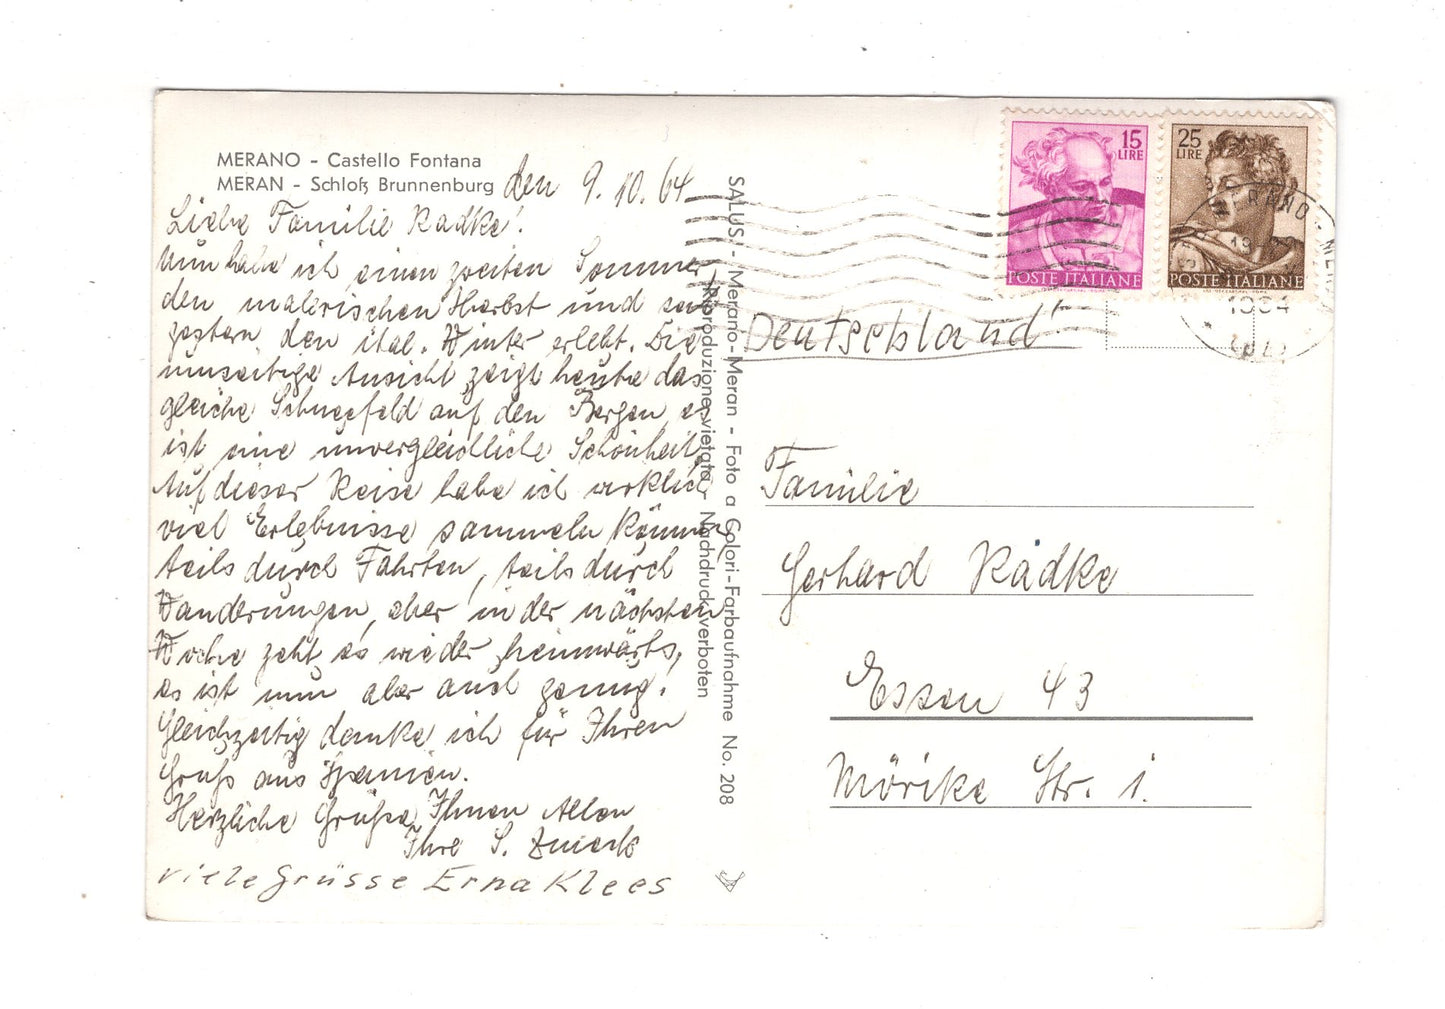 MERANO - Castello Fontana
MERAN - Schloß Brunnenburg
den 9.10.64
Liebe Familie Radke!
Nun habe ich einen zweiten Sommer
den malerischen Herbst und seit
gestern den ital. Winter erlebt. Die
umseitige Ansicht zeigt heute das
gleiche Schneefeld auf den Bergen, es
ist eine unvergleichliche Schönheit,
Auf dieser Reise habe ich wirklich
viel Erlebnisse sammeln können
teils durch Fahrten, teils durch
Wanderungen, aber in der nächsten
Woche geht es wieder heimwärts,
es ist nun aber auch genug!
Gleichzeitig danke ich für Ihren
Gruß aus Spanien.
Herzliche Grüße Ihnen Allen
Ihre S.
viele Grüsse Erna Klees
SALUS - Merano-Meran - Foto a Colori-Farbaufnahme No. 208
Riproduzione vietata - Nachdruck verboten
15 LIRE
POSTE ITALIANE
25 LIRE
POSTE ITALIANE
MERANO - MERAN
Deutschland!
Familie
Gerhard Radke
Essen 43
Mörike Str. 1.